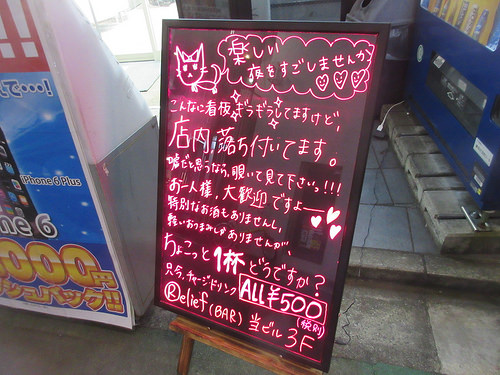 楽しい
夜をすごしませんか
こんなに看板ギラギラしてますけど、
店内、落ち付いてます。
嘘だと思うなら、覗いて見て下さいっ!!!
お一人様、大歓迎ですよー
特別なお酒もありませんし、
軽いおつまみしかありませんが、
ちょこっと1杯どうですか?
只今、チャージ・ドリンク ALL¥500
(税別)
Relief (BAR) 当ビル 3F
で…!
iPhone 6 Plus
ne 6
000円